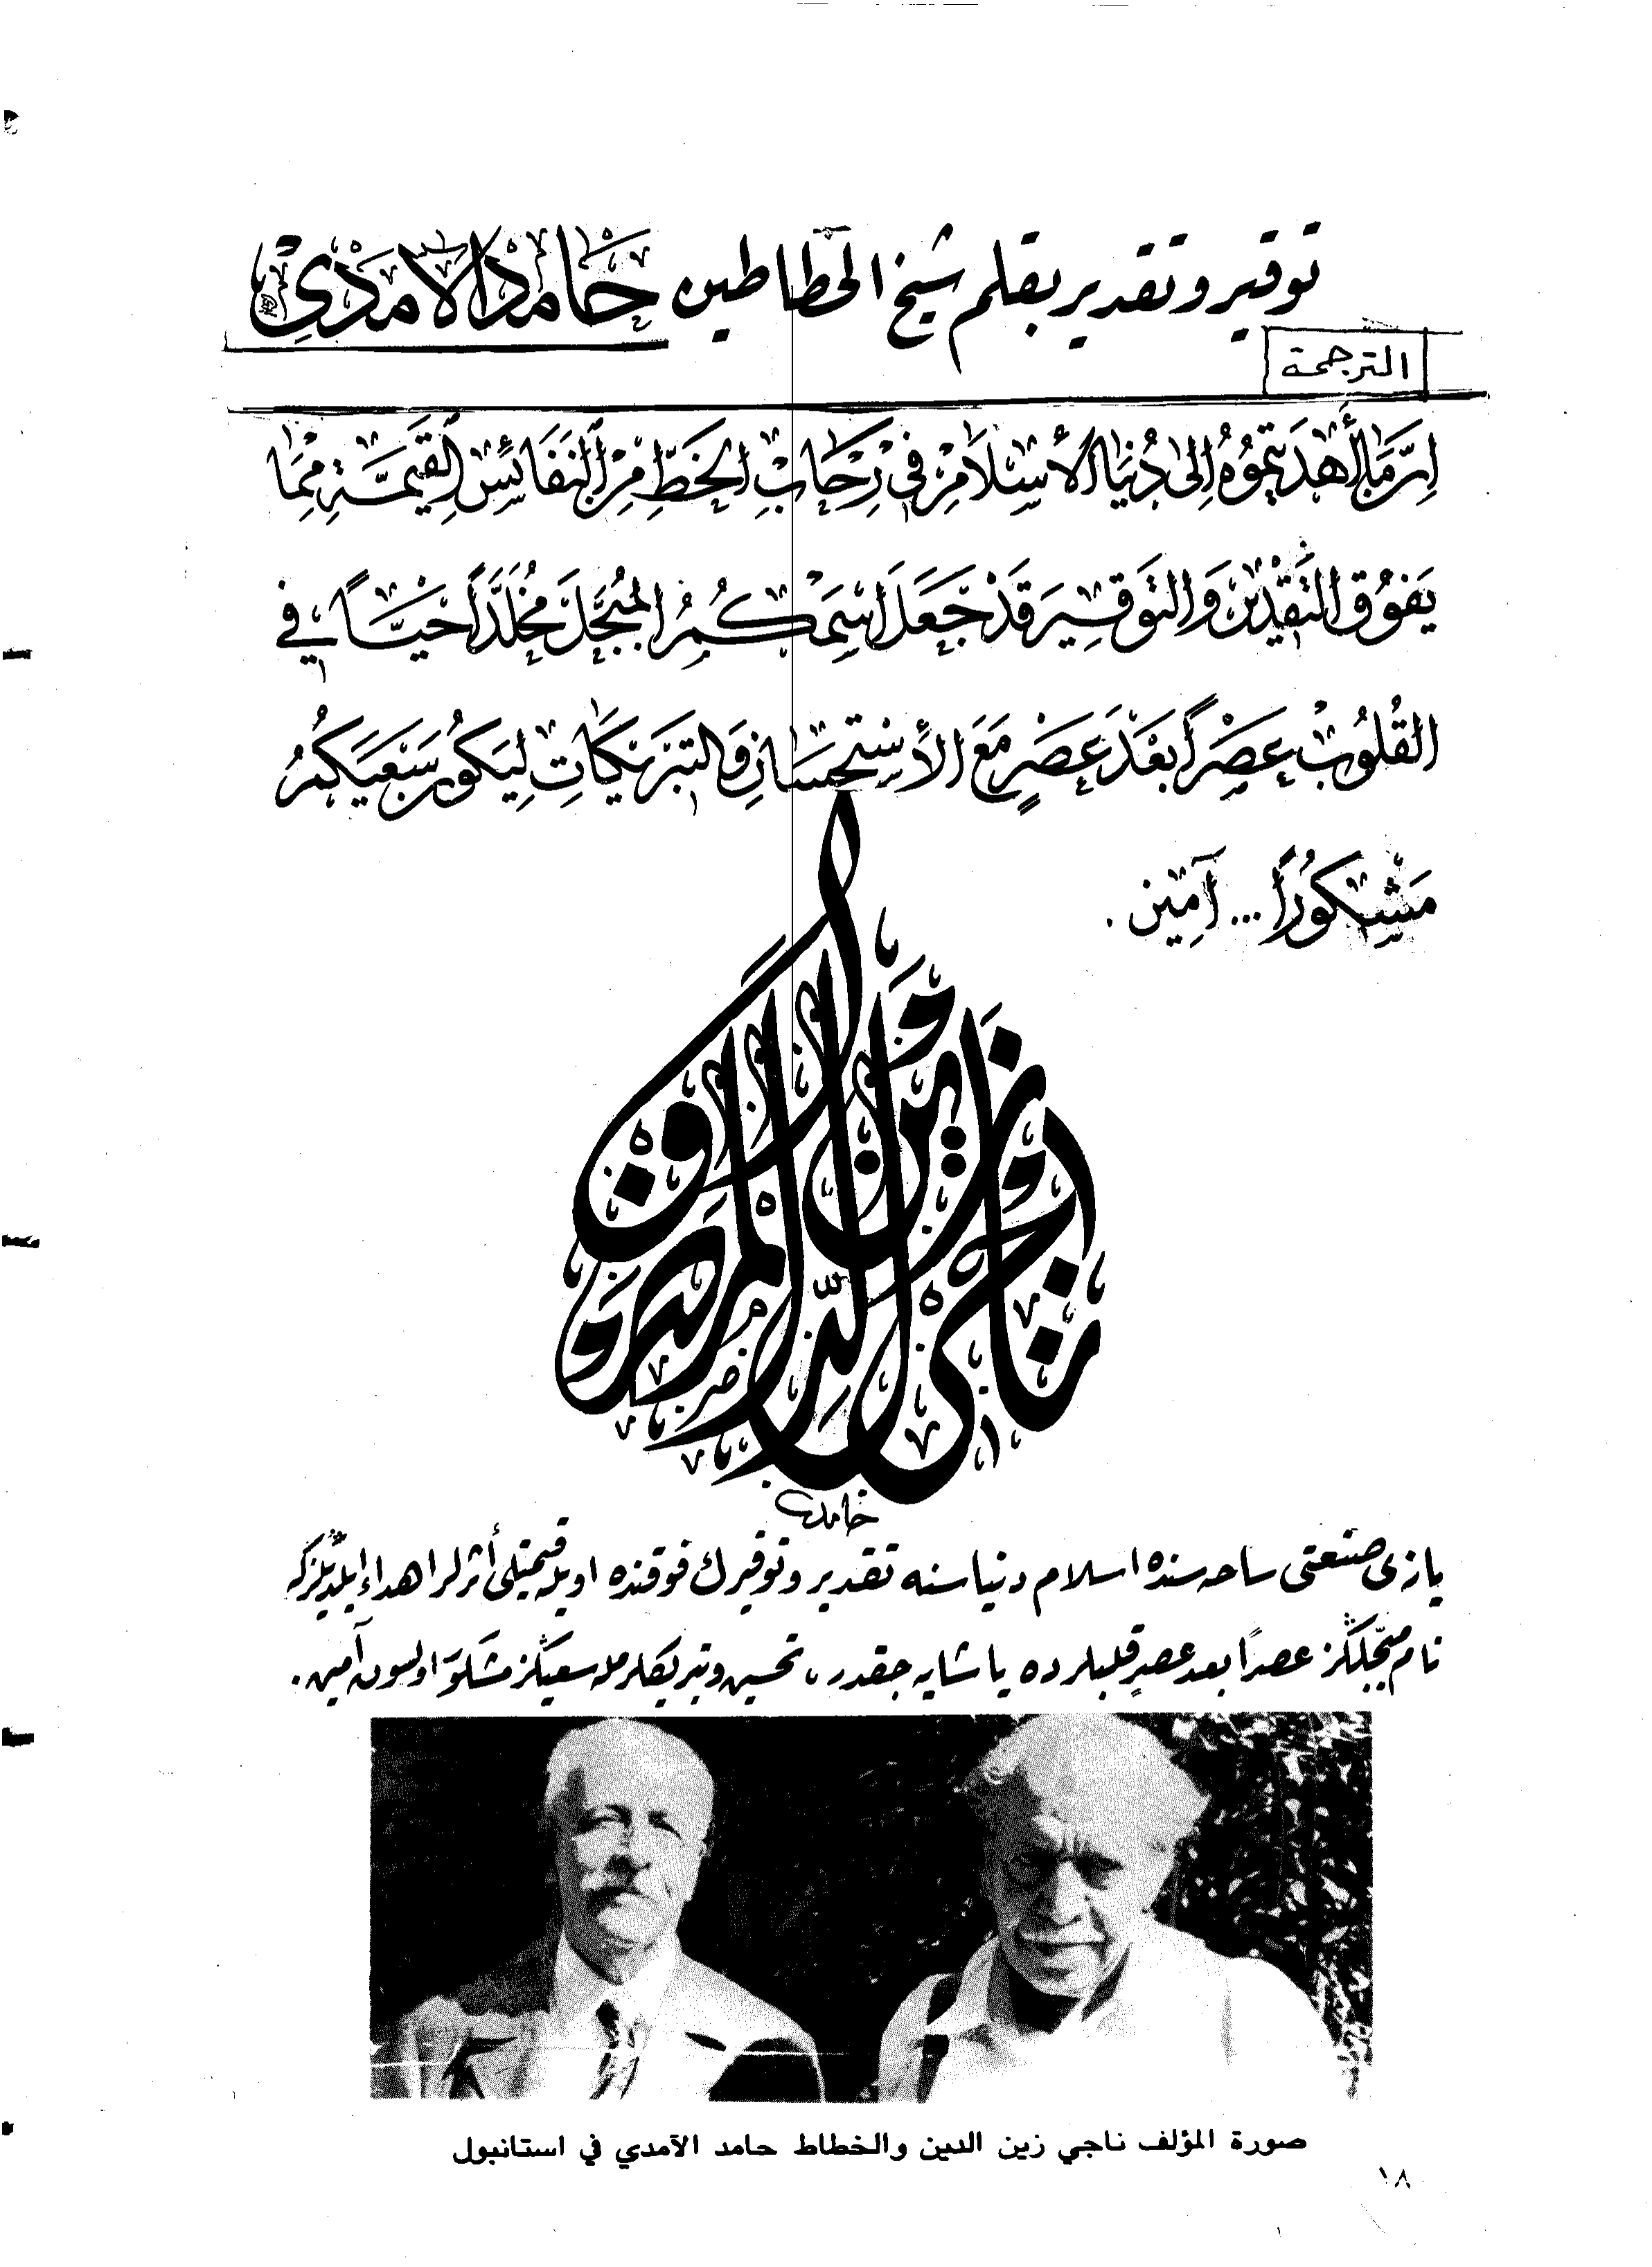 توقير وتقدير بقلم شيخ الخطاطين حَامد الآمدي
الترجمة
إنَّ مَا أَهْدَيتمُوُهُ إِلى دُنيَا الأسْلَامْ في رِحَابِ الخَطِّ مِنْ النَفَائسِ القَيِمَّةِ مِمَا
يَفوُق التَقْدير وَالتَوقِيرَ قَدْ جَعَلَ اسِمْكُمُ المُبَجَّلَ مُخَلَّدَاً حَيّاً في
القُلُوبْ عِصَرْاً بَعْدَ عَصَرٍ مَعَ الأسْتحسَانِ وَالتبَرْيكَاتِ لِيَكوُن سَعَيَكُمُ
مَشكوُراً ... آمِين .
ناجي زين الدين المصرف
حامد
يازى صنعتى ساحه سنده اسلام دنياسنه تقدير وتوقيرك فوقنده اويله قيمتلى أثرلر اهداء ايلديڭزكه
نام مبجّلڭز عصراً بعد عصرٍ قلبلرده ياشايه جقدر ، تحسين وتبريكلرمله سعيڭز مشكوَر اولسون آمين .
صورة المؤلف ناجي زين الدين والخطاط حامد الآمدي في استانبول
١٨